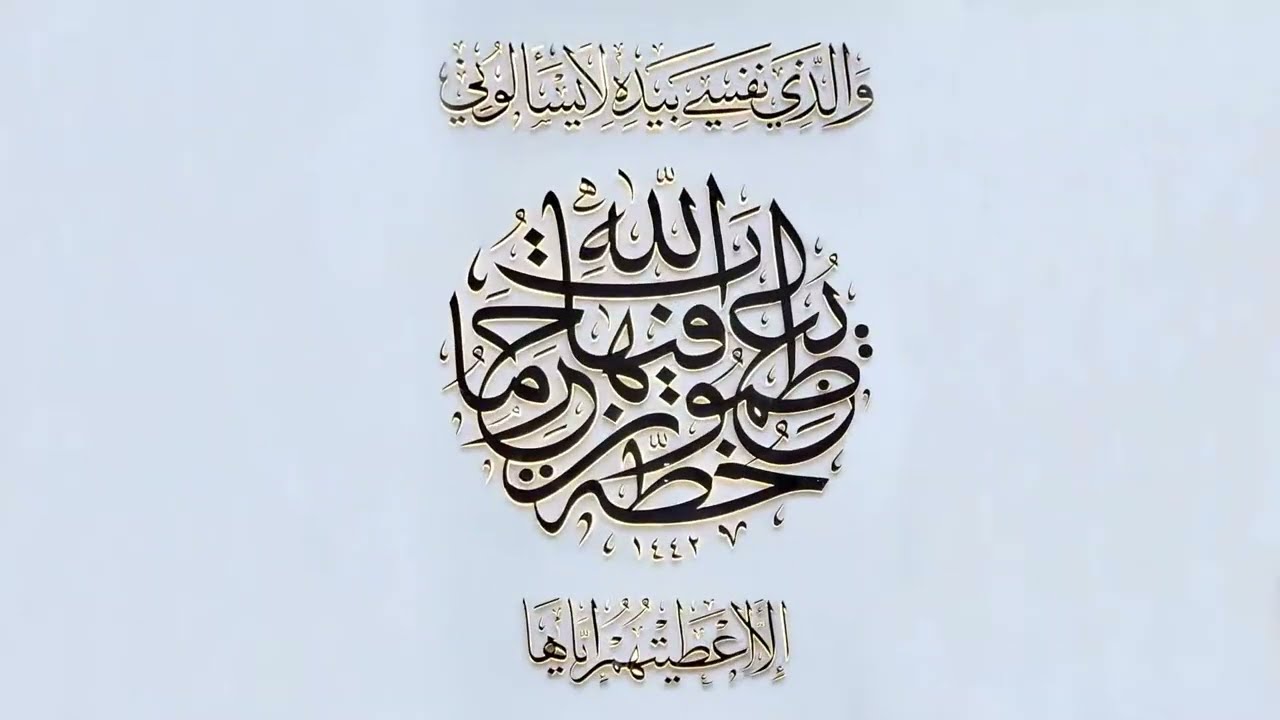 وَالَّذِي نَفْسِي بِيَدِهِ لَا يَسْأَلُونِي
خُطَّةً يُعَظِّمُونَ فِيهَا حُرُمَاتِ اللَّهِ
١٤٤٢
إِلَّا أَعْطَيْتُهُمْ إِيَّاهَا